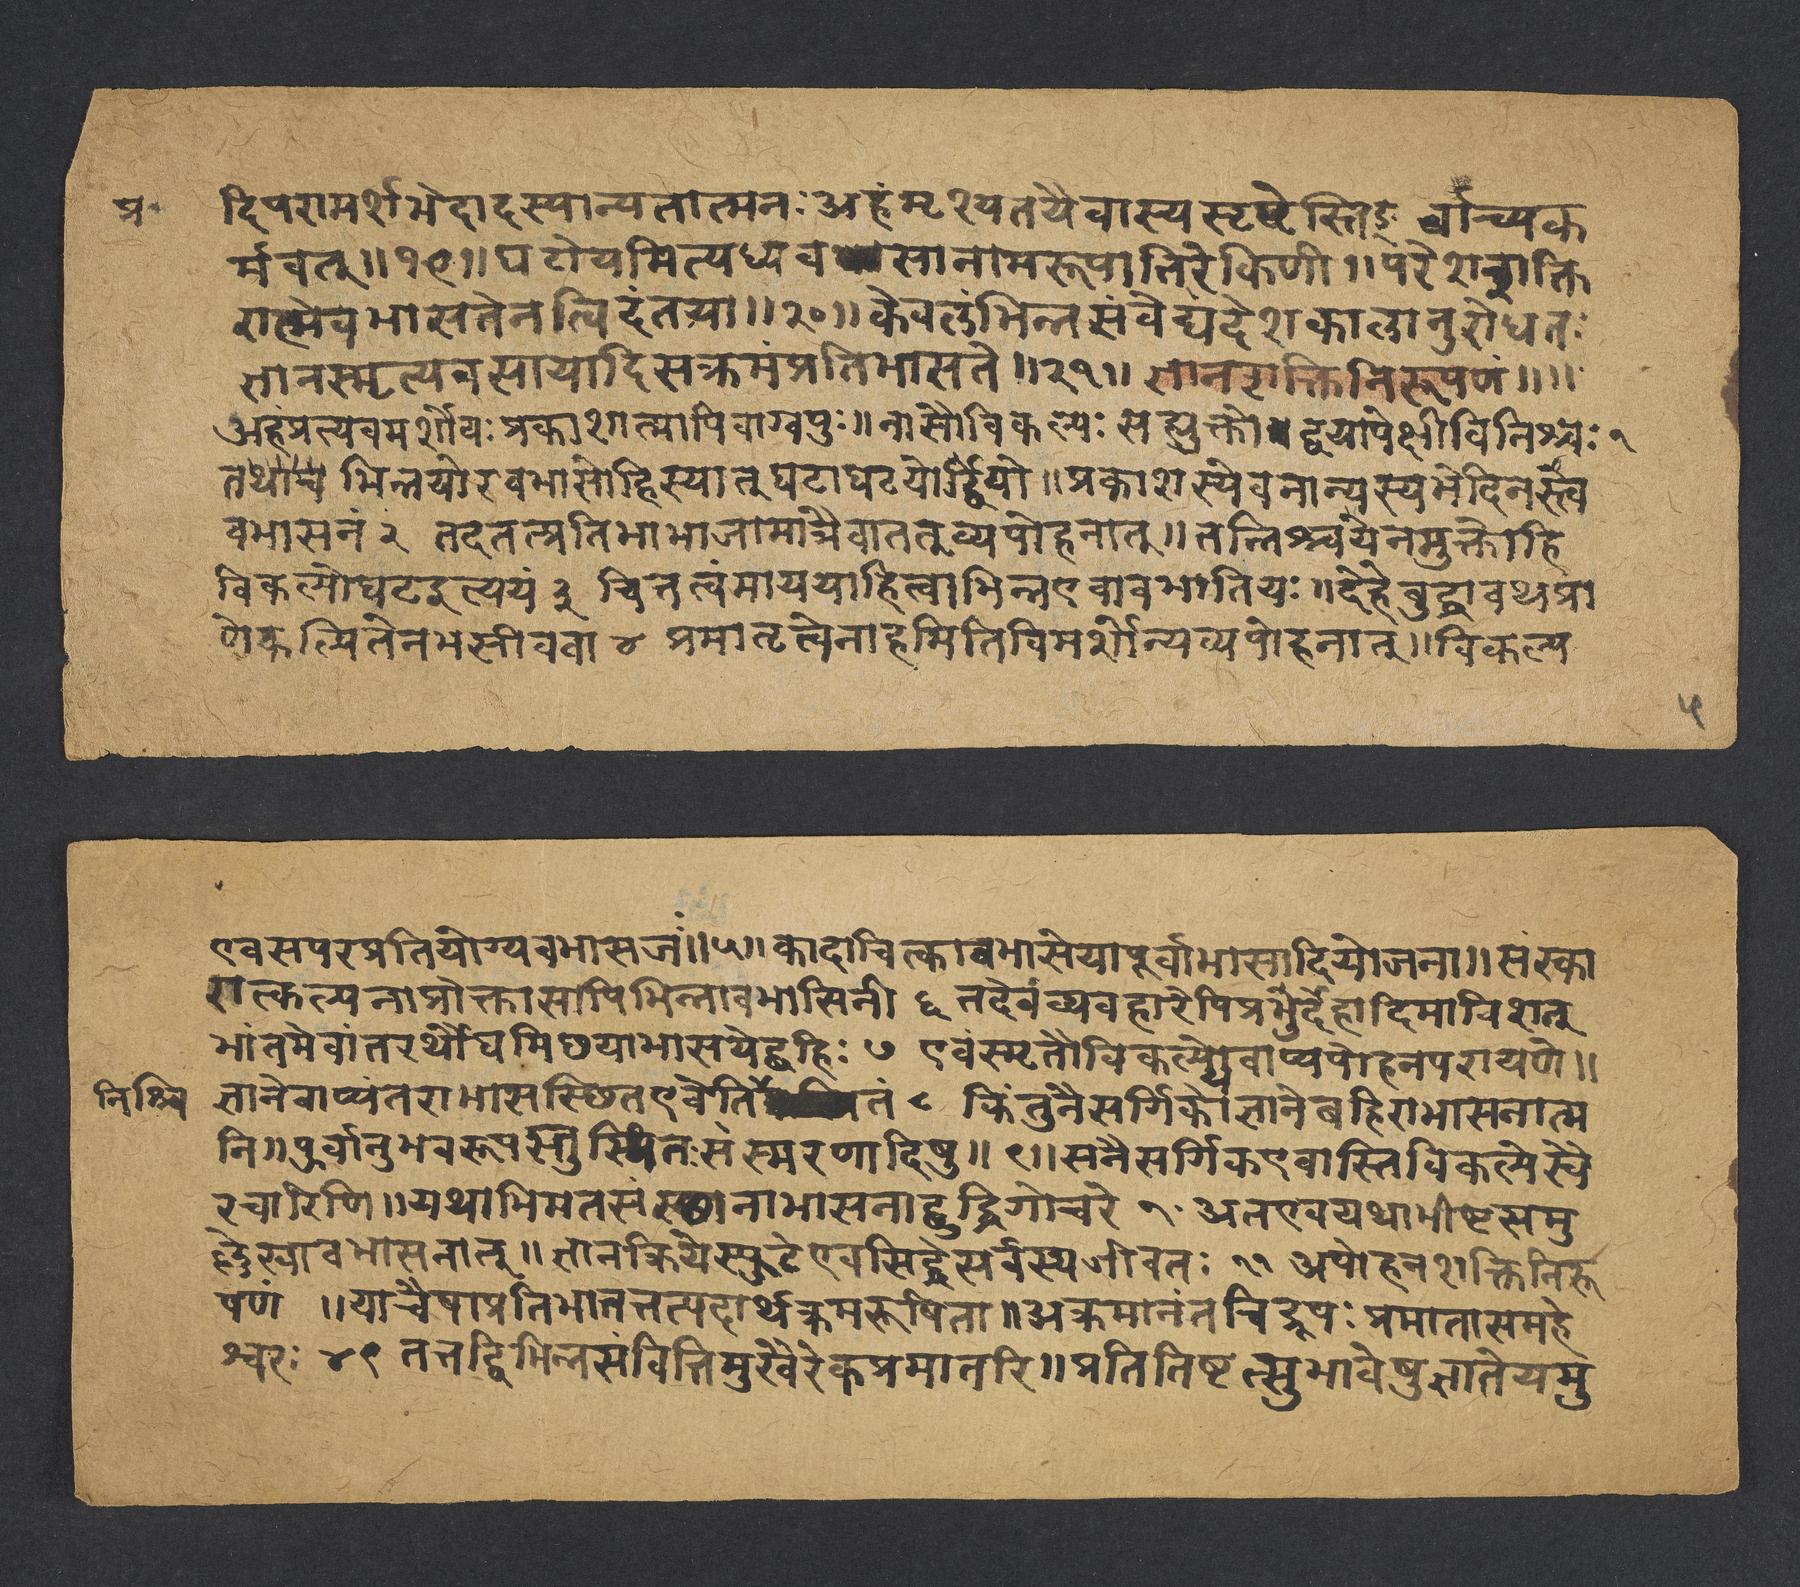 प्र॰
दिपरामर्शभेदादस्यान्यतात्मनः अहंमृश्यतयैवास्य सृष्टेस्तिङ् र्वाच्यक
र्मवत् ॥१९॥ घटोयमित्यध्यवसानामरूपातिरेकिणी ॥ परेशशक्ति
रात्मेवभासतेनत्विदंतया ॥२०॥ केवलंभिन्नसंवेद्यदेशकालानुरोधतः
ज्ञानस्मृत्यवसायादिसक्रमंप्रतिभासते ॥२१॥ ज्ञानशक्तिनिरूपणं ॥॥
अहंप्रत्यवमर्शोयः प्रकाशात्मापिवाग्वपुः॥ नासौविकल्पः सह्युक्तो द्वयापेक्षीविनिश्चः १
तथाच भिन्नयोरवभासोहिस्यात् घटाघटयोर्द्वयो ॥ प्रकाशस्येवनान्यस्यभेदिनस्त्व
वभासनं २ तदतत्प्रतिभाभाजामात्रैवातत् व्यपोहनात् ॥ तन्निश्चयेनमुक्तोहि
विकल्पोघटइत्ययं ३ चित्तत्वंमाययाहित्वाभिन्नएवावभातियः ॥ देहेबुद्धावथप्रा
णेकल्पितेनभसीववा ४ प्रमातृत्वेनाहमितिविमर्शोन्यव्यपोहनात् ॥ विकल्प
५
एवसपरप्रतियोग्यवभासजं ॥५॥ कादाचित्कावभासेयापूर्वाभासादियोजना ॥ संस्का
रात्कल्पनाप्रोक्तासापिभिन्नावभासिनी ६ तदेवंव्यवहारेपिप्रभुर्देहादिमाविशत्
भांतमेवांतरर्थौघमिछयाभासयेद्बहिः ७ एवंस्मृतौविकल्पेवाप्यपोहनपरायणे ॥
निश्चि
ज्ञानेवाप्यंतराभासस्छितएवेति तं ८ किंतुनैसर्गिकोज्ञानेबहिराभासनात्म
नि ॥ पुर्वानुभवरूपस्तुस्थितः संस्मरणादिषु ॥९॥ सनैसर्गिकएवास्तिविकल्पेस्वै
रचारिणि ॥ यथाभिमतसंस्छानाभासनाद्बुद्धिगोचरे १॰ अतएवयथाभीष्टसमु
ल्लेखावभासनात् ॥ ज्ञानक्रियेस्फुटेएवसिद्धेसर्वस्यजीवतः ११ अपोहनशक्तिनिरू
पणं ॥ याचैषाप्रतिभातत्तत्पदार्थक्रमरूषिता ॥ अक्रमानंतचिद्रूपः प्रमातासमहे
श्वरः ४९ तत्तद्विभिन्नसंवित्तिमुखैरेकप्रमातरि ॥ प्रतितिष्टत्सुभावेषुज्ञातेयमु